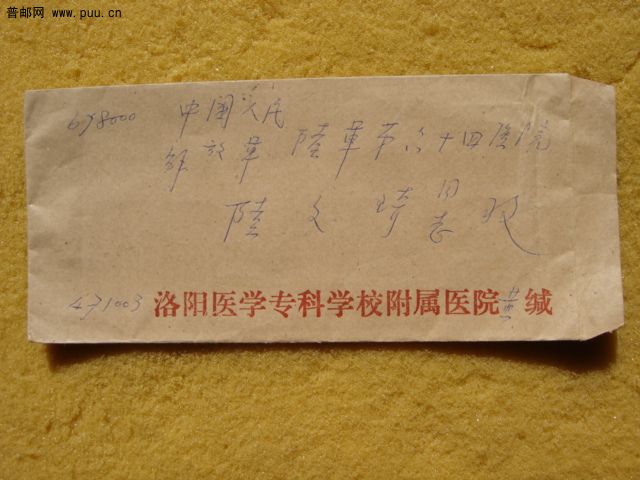 普邮网 www.puu.cn
678000 中国人民
解放军 陆军第六十四医院
陆文琦 同志 收
471003 洛阳医学专科学校附属医院黄缄